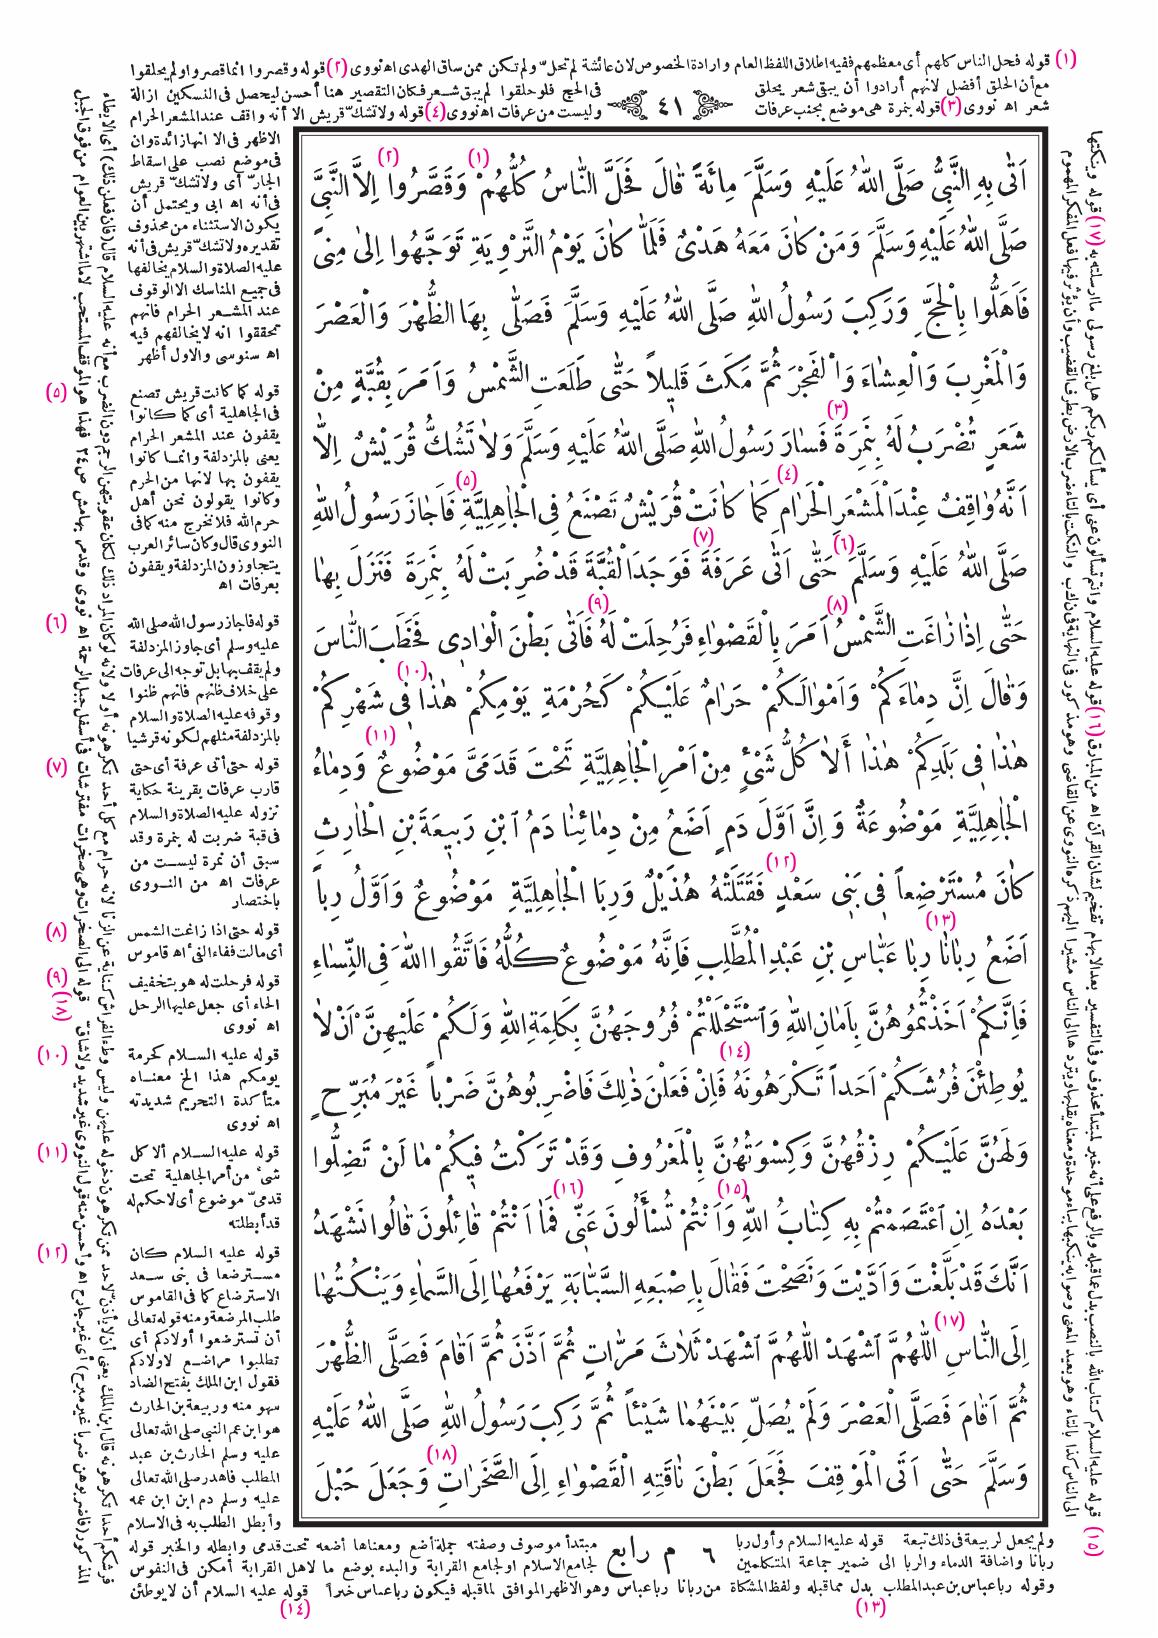 (١) قوله فحل الناس كلهم أى معظمهم ففيه اطلاق اللفظ العام وارادة الخصوص لان عائشة لم تحلّ ولم تكن ممن ساق الهدى اه نووى (٢) قوله وقصروا انما قصروا ولم يحلقوا
مع أن الحلق أفضل لانهم أرادوا أن يبقى شعر يحلق فى الحج فلو حلقوا لم يبق شعر فكان التقصير هنا أحسن ليحصل فى النسكين ازالة
شعر اه نووى (٣) قوله بنمرة هى موضع بجنب عرفات وليست من عرفات اه نووى (٤) قوله ولا تشكّ قريش الا أنه واقف عند المشعر الحرام
٤١
اَتٰى بِهِ النَّبِيُّ صَلَّى اللهُ عَلَيْهِ وَسَلَّمَ مِائَةً قَالَ فَحَلَّ النَّاسُ (١) كُلُّهُمْ وَقَصَّرُوا (٢) اِلاَّ النَّبِيَّ
صَلَّى اللهُ عَلَيْهِ وَسَلَّمَ وَمَنْ كَانَ مَعَهُ هَدْىٌ فَلَمَّا كَانَ يَوْمُ التَّرْوِيَةِ تَوَجَّهُوا اِلىٰ مِنًى
فَاَهَلُّوا بِالْحَجِّ وَرَكِبَ رَسُولُ اللهِ صَلَّى اللهُ عَلَيْهِ وَسَلَّمَ فَصَلّٰى بِهَا الظُّهْرَ وَالْعَصْرَ
وَالْمَغْرِبَ وَالْعِشَاءَ وَالْفَجْرَ ثُمَّ مَكَثَ قَلِيلاً حَتّٰى طَلَعَتِ الشَّمْسُ وَاَمَرَ بِقُبَّةٍ مِنْ
شَعَرٍ تُضْرَبُ لَهُ بِنَمِرَةَ (٣) فَسَارَ رَسُولُ اللهِ صَلَّى اللهُ عَلَيْهِ وَسَلَّمَ وَلاٰ تَشُكُّ قُرَيْشٌ اِلاّٰ
اَنَّهُ وَاقِفٌ عِنْدَ الْمَشْعَرِ الْحَرَامِ (٤) كَمَا كَانَتْ قُرَيْشٌ تَصْنَعُ فِى الْجَاهِلِيَّةِ (٥) فَاَجَازَ رَسُولُ اللهِ
صَلَّى اللهُ عَلَيْهِ وَسَلَّمَ (٦) حَتّٰى اَتٰى عَرَفَةَ (٧) فَوَجَدَ الْقُبَّةَ قَدْ ضُرِبَتْ لَهُ بِنَمِرَةَ فَنَزَلَ بِهَا
حَتّٰى اِذَا زَاغَتِ الشَّمْسُ (٨) اَمَرَ بِالْقَصْوَاءِ فَرُحِلَتْ لَهُ (٩) فَاَتٰى بَطْنَ الْوَادِى فَخَطَبَ النَّاسَ
وَقَالَ اِنَّ دِمَاءَكُمْ وَاَمْوَالَكُمْ حَرَامٌ عَلَيْكُمْ كَحُرْمَةِ يَوْمِكُمْ هٰذَا (١٠) فِى شَهْرِكُمْ
هٰذَا فِى بَلَدِكُمْ هٰذَا أَلاٰ كُلُّ شَيْءٍ مِنْ اَمْرِ الْجَاهِلِيَّةِ تَحْتَ قَدَمَىَّ مَوْضُوعٌ (١١) وَدِمَاءُ
الْجَاهِلِيَّةِ مَوْضُوعَةٌ وَاِنَّ اَوَّلَ دَمٍ اَضَعُ مِنْ دِمَائِنَا دَمُ ابْنِ رَبِيعَةَ بْنِ الْحَارِثِ
كَانَ مُسْتَرْضِعاً فِى بَنِى سَعْدٍ (١٢) فَقَتَلَتْهُ هُذَيْلٌ وَرِبَا الْجَاهِلِيَّةِ مَوْضُوعٌ وَاَوَّلُ رِباً
اَضَعُ رِبَانَا (١٣) رِبَا عَبَّاسِ بْنِ عَبْدِ الْمُطَّلِبِ فَاِنَّهُ مَوْضُوعٌ كُلُّهُ فَاتَّقُوا اللهَ فِى النِّسَاءِ
فَاِنَّكُمْ اَخَذْتُمُوهُنَّ بِاَمَانِ اللهِ وَاسْتَحْلَلْتُمْ فُرُوجَهُنَّ بِكَلِمَةِ اللهِ وَلَكُمْ عَلَيْهِنَّ اَنْ لاٰ
يُوطِئْنَ فُرُشَكُمْ اَحَداً تَكْرَهُونَهُ (١٤) فَاِنْ فَعَلْنَ ذٰلِكَ فَاضْرِبُوهُنَّ ضَرْباً غَيْرَ مُبَرِّحٍ
وَلَهُنَّ عَلَيْكُمْ رِزْقُهُنَّ وَكِسْوَتُهُنَّ بِالْمَعْرُوفِ وَقَدْ تَرَكْتُ فِيكُمْ مَا لَنْ تَضِلُّوا
بَعْدَهُ اِنِ اعْتَصَمْتُمْ بِهِ كِتَابُ اللهِ (١٥) وَاَنْتُمْ تُسْأَلُونَ عَنِّى (١٦) فَمَا اَنْتُمْ قَائِلُونَ قَالُوا نَشْهَدُ
اَنَّكَ قَدْ بَلَّغْتَ وَاَدَّيْتَ وَنَصَحْتَ فَقَالَ بِاِصْبَعِهِ السَّبَّابَةِ يَرْفَعُهَا اِلَى السَّمَاءِ وَيَنْكُتُهَا
اِلَى النَّاسِ (١٧) اللّٰهُمَّ اشْهَدْ اللّٰهُمَّ اشْهَدْ ثَلاَثَ مَرَّاتٍ ثُمَّ اَذَّنَ ثُمَّ اَقَامَ فَصَلَّى الظُّهْرَ
ثُمَّ اَقَامَ فَصَلَّى الْعَصْرَ وَلَمْ يُصَلِّ بَيْنَهُمَا شَيْئاً ثُمَّ رَكِبَ رَسُولُ اللهِ صَلَّى اللهُ عَلَيْهِ
وَسَلَّمَ حَتّٰى اَتَى الْمَوْقِفَ فَجَعَلَ بَطْنَ نَاقَتِهِ الْقَصْوَاءِ اِلَى الصَّخَرَاتِ (١٨) وَجَعَلَ حَبْلَ
الاظهر فى الا انها زائدة وان
فى موضع نصب على اسقاط
الجارّ أى ولا تشكّ قريش
فى أنه اه ابى ويحتمل أن
يكون الاستثناء من محذوف
تقديره ولا تشكّ قريش فى أنه
عليه الصلاة والسلام يخالفها
فى جميع المناسك الا الوقوف
عند المشعر الحرام فانهم
تحققوا انه لا يخالفهم فيه
اه سنوسى والاول أظهر
(٥) قوله كما كانت قريش تصنع
فى الجاهلية أى كما كانوا
يقفون عند المشعر الحرام
يعنى بالمزدلفة وانما كانوا
يقفون بها لانها من الحرم
وكانوا يقولون نحن أهل
حرم الله فلا نخرج منه كما فى
النووى قال وكان سائر العرب
يتجاوزون المزدلفة ويقفون
بعرفات اه
(٦) قوله فاجاز رسول الله صلى الله
عليه وسلم أى جاوز المزدلفة
ولم يقف بها بل توجه الى عرفات
على خلاف ظنهم فانهم ظنوا
وقوفه عليه الصلاة والسلام
بالمزدلفة مثلهم لكونه قرشيا
(٧) قوله حتى أتى عرفة أى حتى
قارب عرفات بقرينة حكاية
نزوله عليه الصلاة والسلام
فى قبة ضربت له بنمرة وقد
سبق أن نمرة ليست من
عرفات اه من النووى
باختصار
(٨) قوله حتى اذا زاغت الشمس
أى مالت ففاء الفئ اه قاموس
(٩) قوله فرحلت له هو بتخفيف
الحاء أى جعل عليها الرحل
اه نووى
(١٠) قوله عليه السلام كحرمة
يومكم هذا الخ معناه
متأكدة التحريم شديدته
اه نووى
(١١) قوله عليه السلام ألا كل
شئ من أمر الجاهلية تحت
قدمىّ موضوع أى لا حكم له
قد أبطلته
(١٢) قوله عليه السلام كان
مسترضعا فى بنى سعد
الاسترضاع كما فى القاموس
طلب المرضعة ومنه قوله تعالى
أن تسترضعوا أولادكم أى
تطلبوا مراضع لاولادكم
فقول ابن الملك بفتح الضاد
سهو منه وربيعة بن الحارث
هو ابن عم النبى صلى الله تعالى
عليه وسلم الحارث بن عبد
المطلب فاهدر صلى الله تعالى
عليه وسلم دم ابن ابن عمه
وأبطل الطلب به فى الاسلام
ولم يجعل لربيعة فى ذلك تبعة قوله عليه السلام وأول ربا مبتدأ موصوف وصفته جملة أضع ومعناها أضعه تحت قدمى وابطله والخبر قوله
ربانا واضافة الدماء والربا الى ضمير جماعة المتكلمين لجامع الاسلام او لجامع القرابة والبدء بوضع ما لاهل القرابة أمكن فى النفوس
٦ م رابع
وقوله ربا عباس بن عبد المطلب بدل مما قبله ولفظ المشكاة من ربانا ربا عباس وهو الاظهر الموافق لما قبله فيكون ربا عباس خبراً قوله عليه السلام أن لا يوطئن
(١٣) (١٤)
(١٥) قوله عليه السلام كتاب الله بالنصب بدل مما قبله وبالرفع على أنه خبر لمبتدأ محذوف وفى التفسير بعد الابهام تفخيم لشان القرآن اه من المبارق (١٦) قوله عليه السلام وانتم تسألون عنى أى يسألكم ربكم هل بلغ رسولى ما ارسلته به (١٧) قوله وينكتها
(١٨)